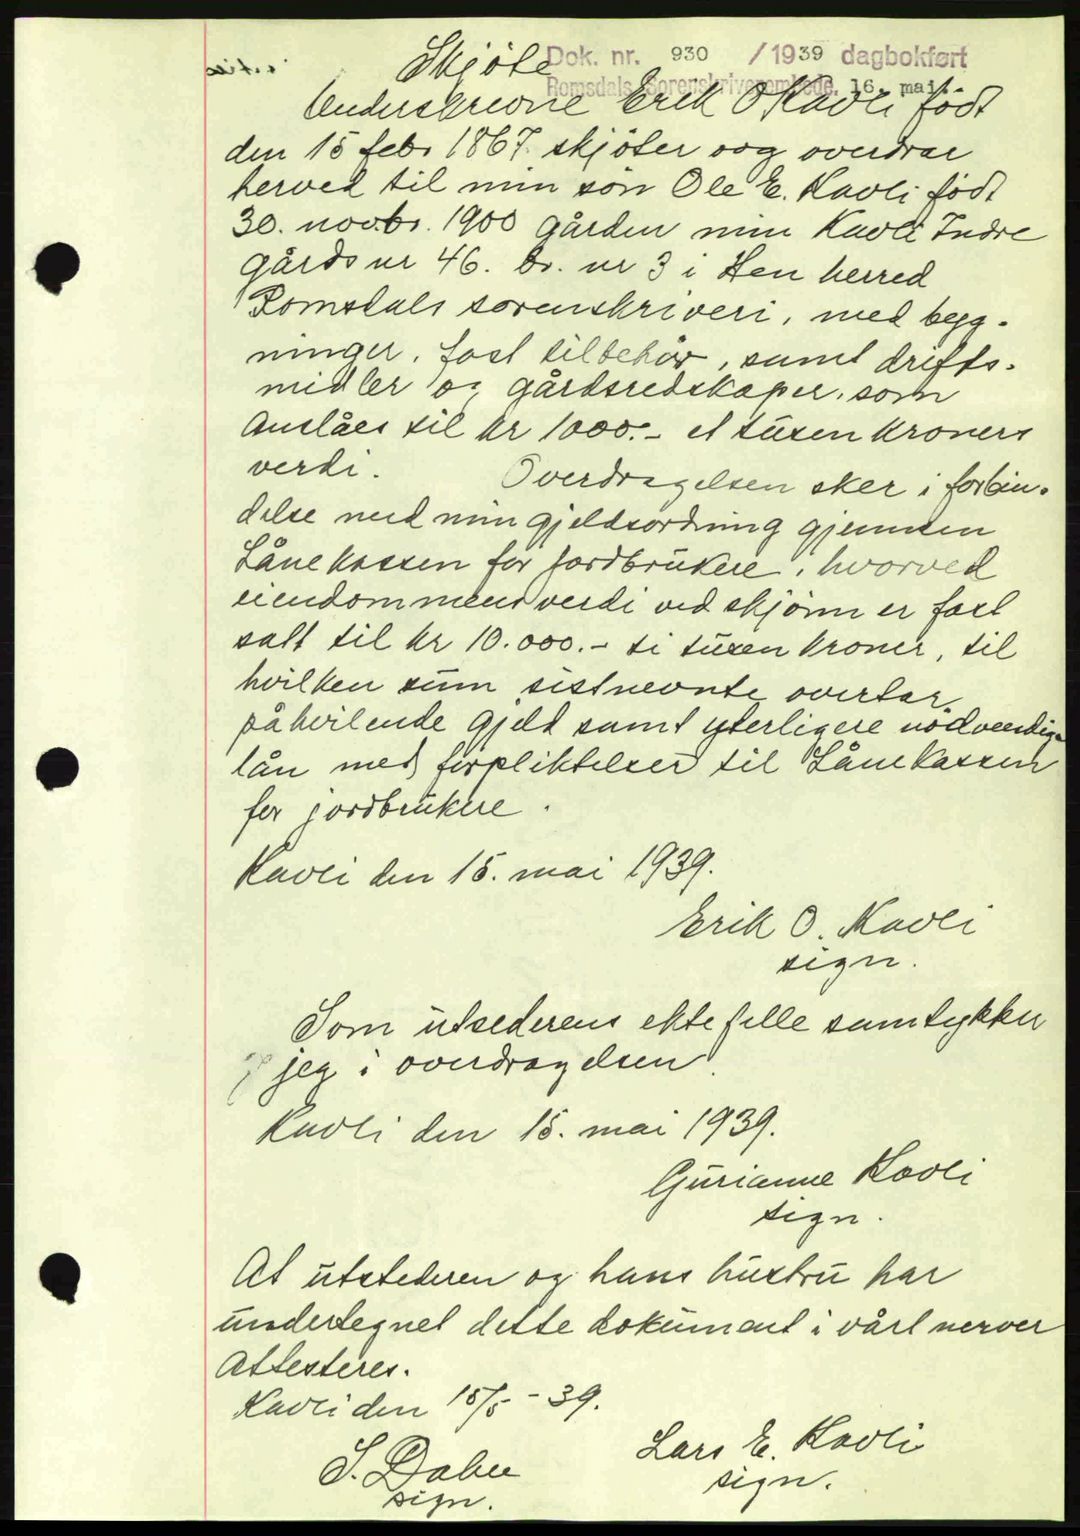 Skjöte
Dok. nr. 930 / 1939 dagbokført
Romsdals Sorenskriverembede, 16. mai
Underskrevne Erik O Kavli född
den 15 febr 1867. skjöter oog overdrar
herved til min sön Ole E. Kavli född
30. novbr. 1900 gården min Kavli Indre
gårds nr 46. br. nr 3 i Hen herred
Romsdals sorenskriveri, med byg-
ninger, fast tilbehör, samt drifts-
midler og gårdsredskaper, som
anslåes til kr 1000.- et tusen kroners
verdi. Overdragelsen sker i forbin-
delse med min gjeldsordning gjennem
Lånekassen for Jordbrukere, hvorved
eiendommens verdi ved skjönn er fast
satt til kr 10.000.- ti tusen kroner, til
hvilken sum sistnevnte overtar
påhvilende gjeld samt yterligere nödvendige
lån med forpliktelser til Lånekassen
for jordbrukere.
Kavli den 15. mai 1939.
Erik O. Kavli
sign.
Som utsederens ektefelle samtykker
jeg i overdragelsen.
Kavli den 15. mai 1939.
Gurianne Kavli
sign.
At utstederen og hans hustru har
undertegnet dette dokument i vårt nerver
Attesteres.
Kavli den 15/5 - 39.
S. Dahle Lars E. Kavli
sign. sign.